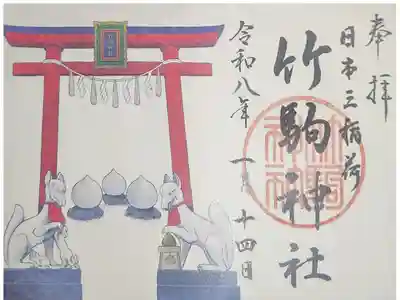 奉拝
日本三稲荷
竹駒神社
令和八年 一月 十四日